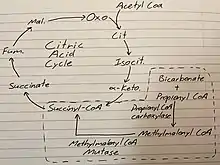 Acetyl Coa
Mal.
Oxo
Cit
Citric
Acid
Cycle
Fum.
Isocit.
α-Keto.
Succinate
Succinyl-CoA
Bicarbonate
+
Propionyl CoA
Propionyl CoA
carboxylase
Methylmalonyl CoA
Methylmalonyl CoA
Mutase